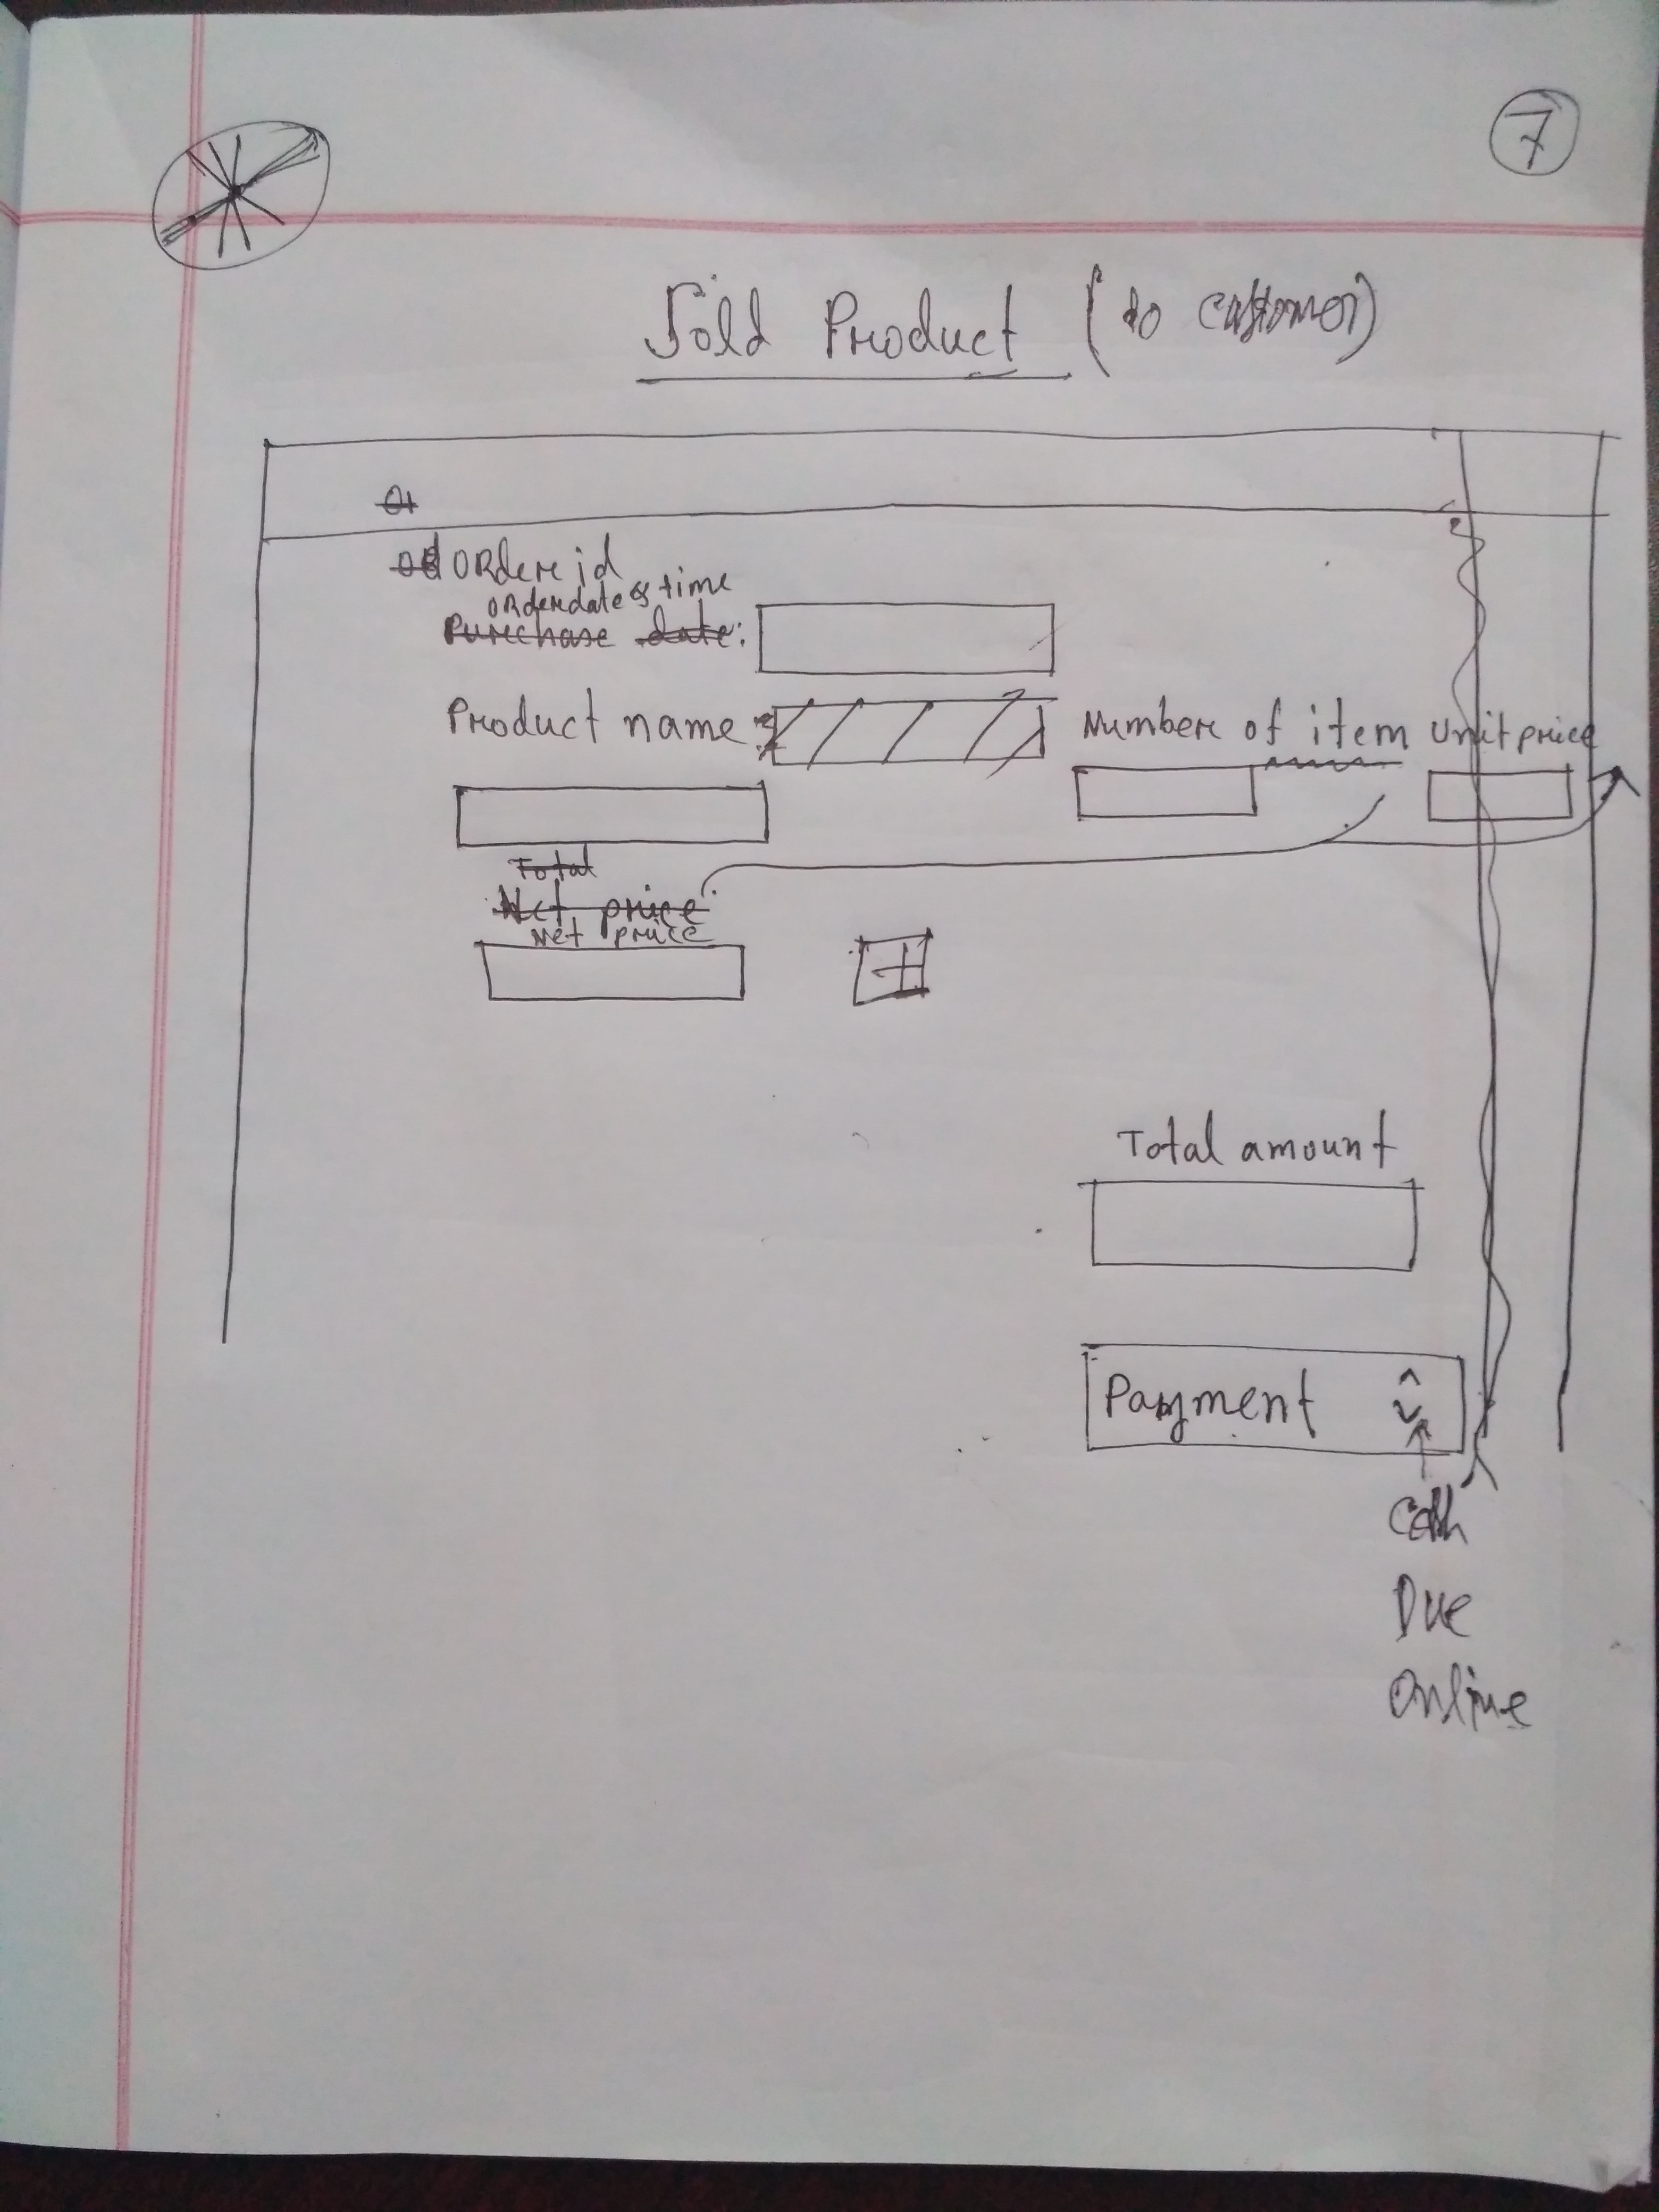 7
Sold Product (to customer)
Ordere id
Orderdate & time
Purchase date:
Product name: Number of item Unit price
Total
Net price
Net price
+
Total amount
Payment
Cash
Due
Online